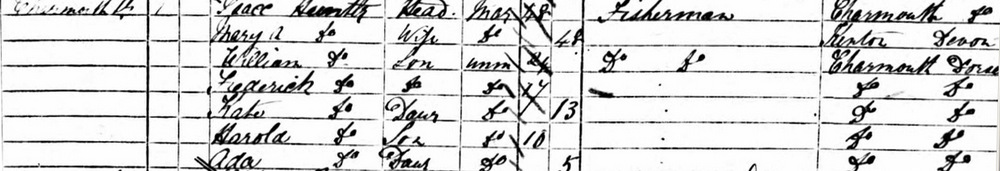 Charmouth St 1 Isaac Hunter Head Mar 48 Fisherman Charmouth Do
Mary A Do Wife Do 48 Kenton Devon
William Do Son unm 24 Do Do Charmouth Dorse
Frederick Do Do Do 17 Do Do
Kate Do Daur Do 13 Do Do
Harold Do Son Do 10 Do Do
Ada Do Daur Do 5 Do Do